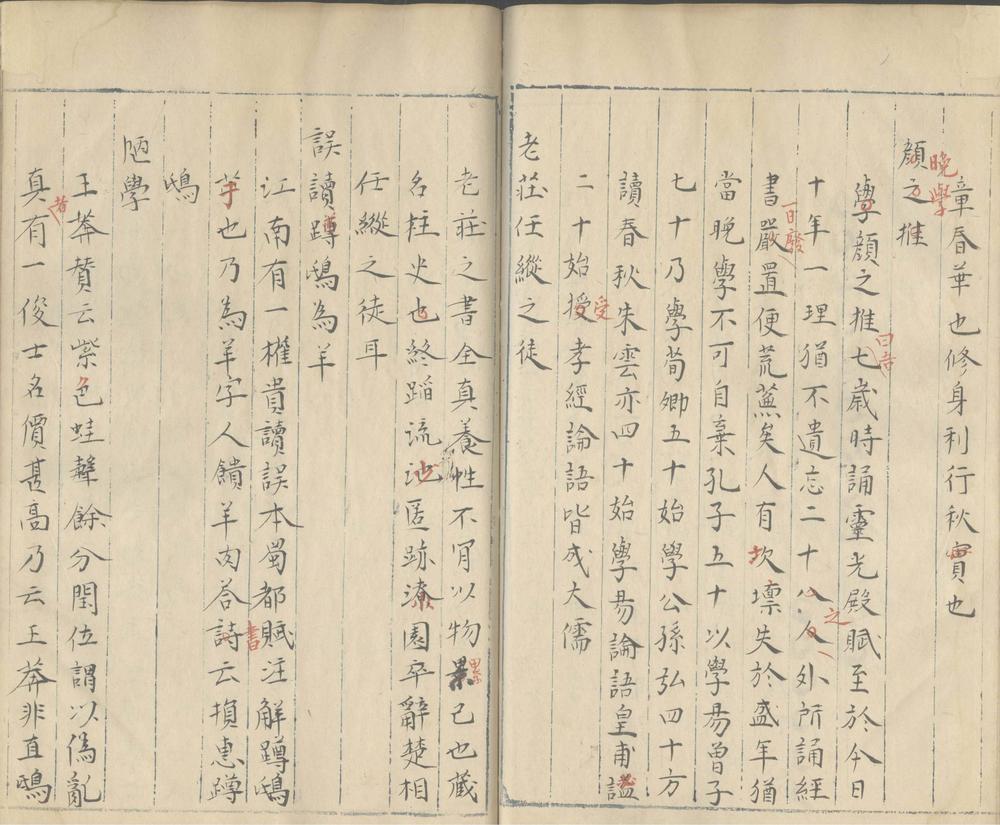 章春華也修身利行秋實也
晚學
顏之推
學顏之推七歲時誦靈光殿賦至於今日
曰吾
十年一理猶不遺忘二十八人外所誦經
之
書嚴置便荒蕪矣人有坎壈失於盛年猶
一月廢
當晚學不可自棄孔子五十以學易曾子
七十乃學荀卿五十始學公孫弘四十方
讀春秋朱雲亦四十始學易論語皇甫謐
二十始授孝經論語皆成大儒
受
老莊任縱之徒
老莊之書全真養性不肎以物累己也藏
累
名柱史也終蹈流池匿跡潦園卒辭楚相
任縱之徒耳
誤讀蹲鴟為羊
江南有一權貴讀誤本蜀都賦注解蹲鴟
芋也乃為羊字人饋羊肉荅詩云損惠蹲
書
鴟
陋學
王莽贊云紫色蛙聲餘分閏位謂以偽亂
真有一俊士名價甚高乃云王莽非直鴟
者